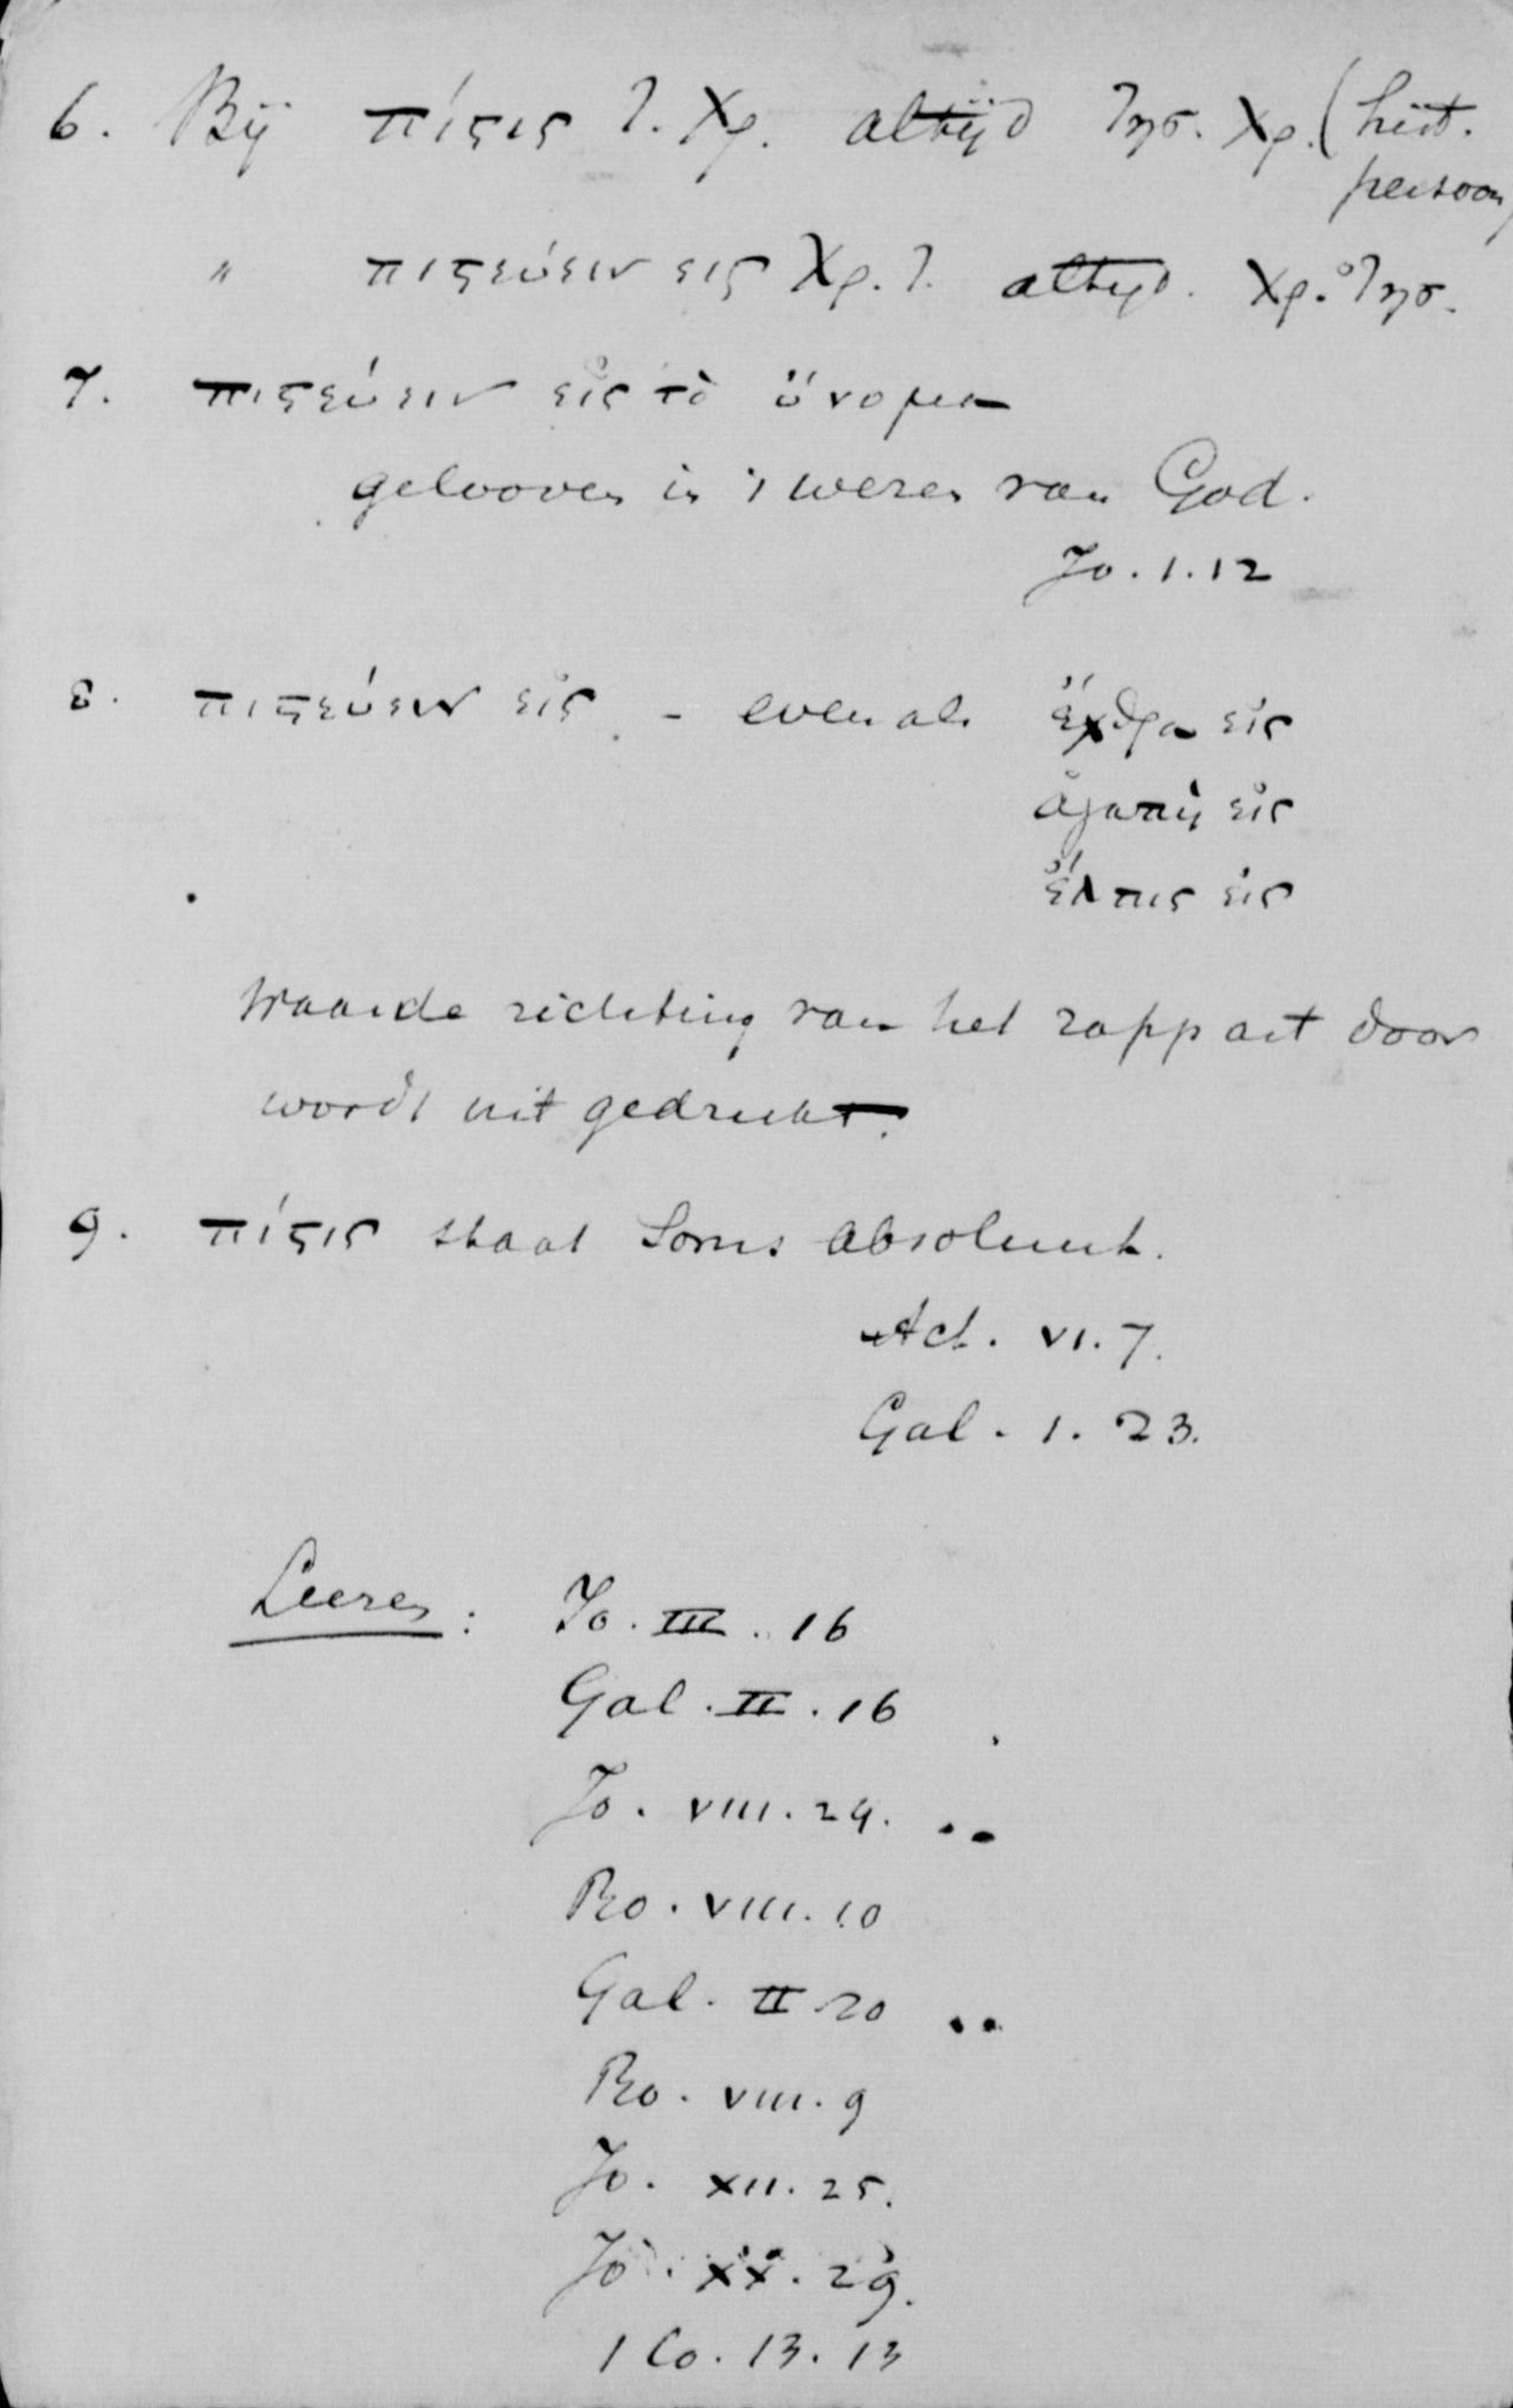 6. Bij πίςις Ἰ. Χρ. altijd Ἰησ. Χρ. (hist.
persoon)
" πιςεύειν εις Χρ. Ἰ. altijd. Χρ. Ἰησ.
7. πιςεύειν εἰς τὸ ὄνομα
gelooven in 't wezen van God.
Jo. 1. 12
8. πιςεύειν εἰς - evenals ἔχθρα εἰς
ἀγαπὴ εἰς
ἔλπις εἰς
waar de richting van het rapport door
wordt uit gedrukt.
9. πίςις staat soms absoluut.
Act. VI. 7.
Gal. 1. 23.
Leeren: Jo. III. 16
Gal. II. 16
Jo. VIII. 24. ..
Ro. VIII. 10
Gal. II 20 ..
Ro. VIII. 9
Jo. XII. 25.
Jo. XX. 29.
1 Co. 13. 13